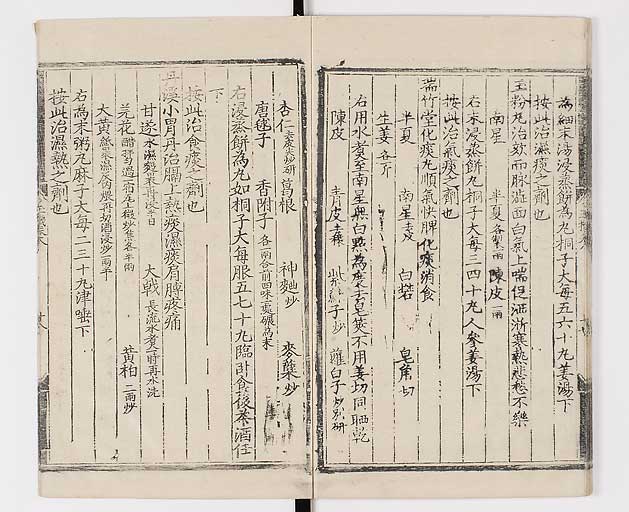 為細末湯浸蒸餅為丸桐子大每五六十丸姜湯下
按此治濕痰之劑也
玉粉丸治 而脉澁面白氣上喘促洒淅寒熱悲愁不樂
南星 半夏各製二兩 陳皮一兩
右末浸蒸餅丸桐子大每三四十丸人參姜湯下
按此治氣痰之劑也
瑞竹堂化痰丸順氣快脾化痰消食
半夏 南星去皮 白礬 皂角切
生姜各一斤
右用水煮至南星無白點為度去皂莢不用姜切同晒乾
陳皮 青皮去穰 紫蘇子炒 蘿白子炒別研
杏仁去皮炒研 葛根 神麯炒 麥蘖炒
唐毬子 香附子各 兩 前四味 碾為末
右浸蒸餅為丸如桐子大每服五七十丸臨卧食後茶酒任
下
按此治食痰之劑也
丹溪小胃丹治膈上熱痰濕痰肩脾痰痛
甘遂 大戟長流水煮一時再水洗
芫花醋 過一宿 炒 各半兩
大黃 再 酒浸炒 一兩半 黃柏二兩炒
右為末粥丸麻子大每二三十丸津嚥下
按此治濕熱之劑也